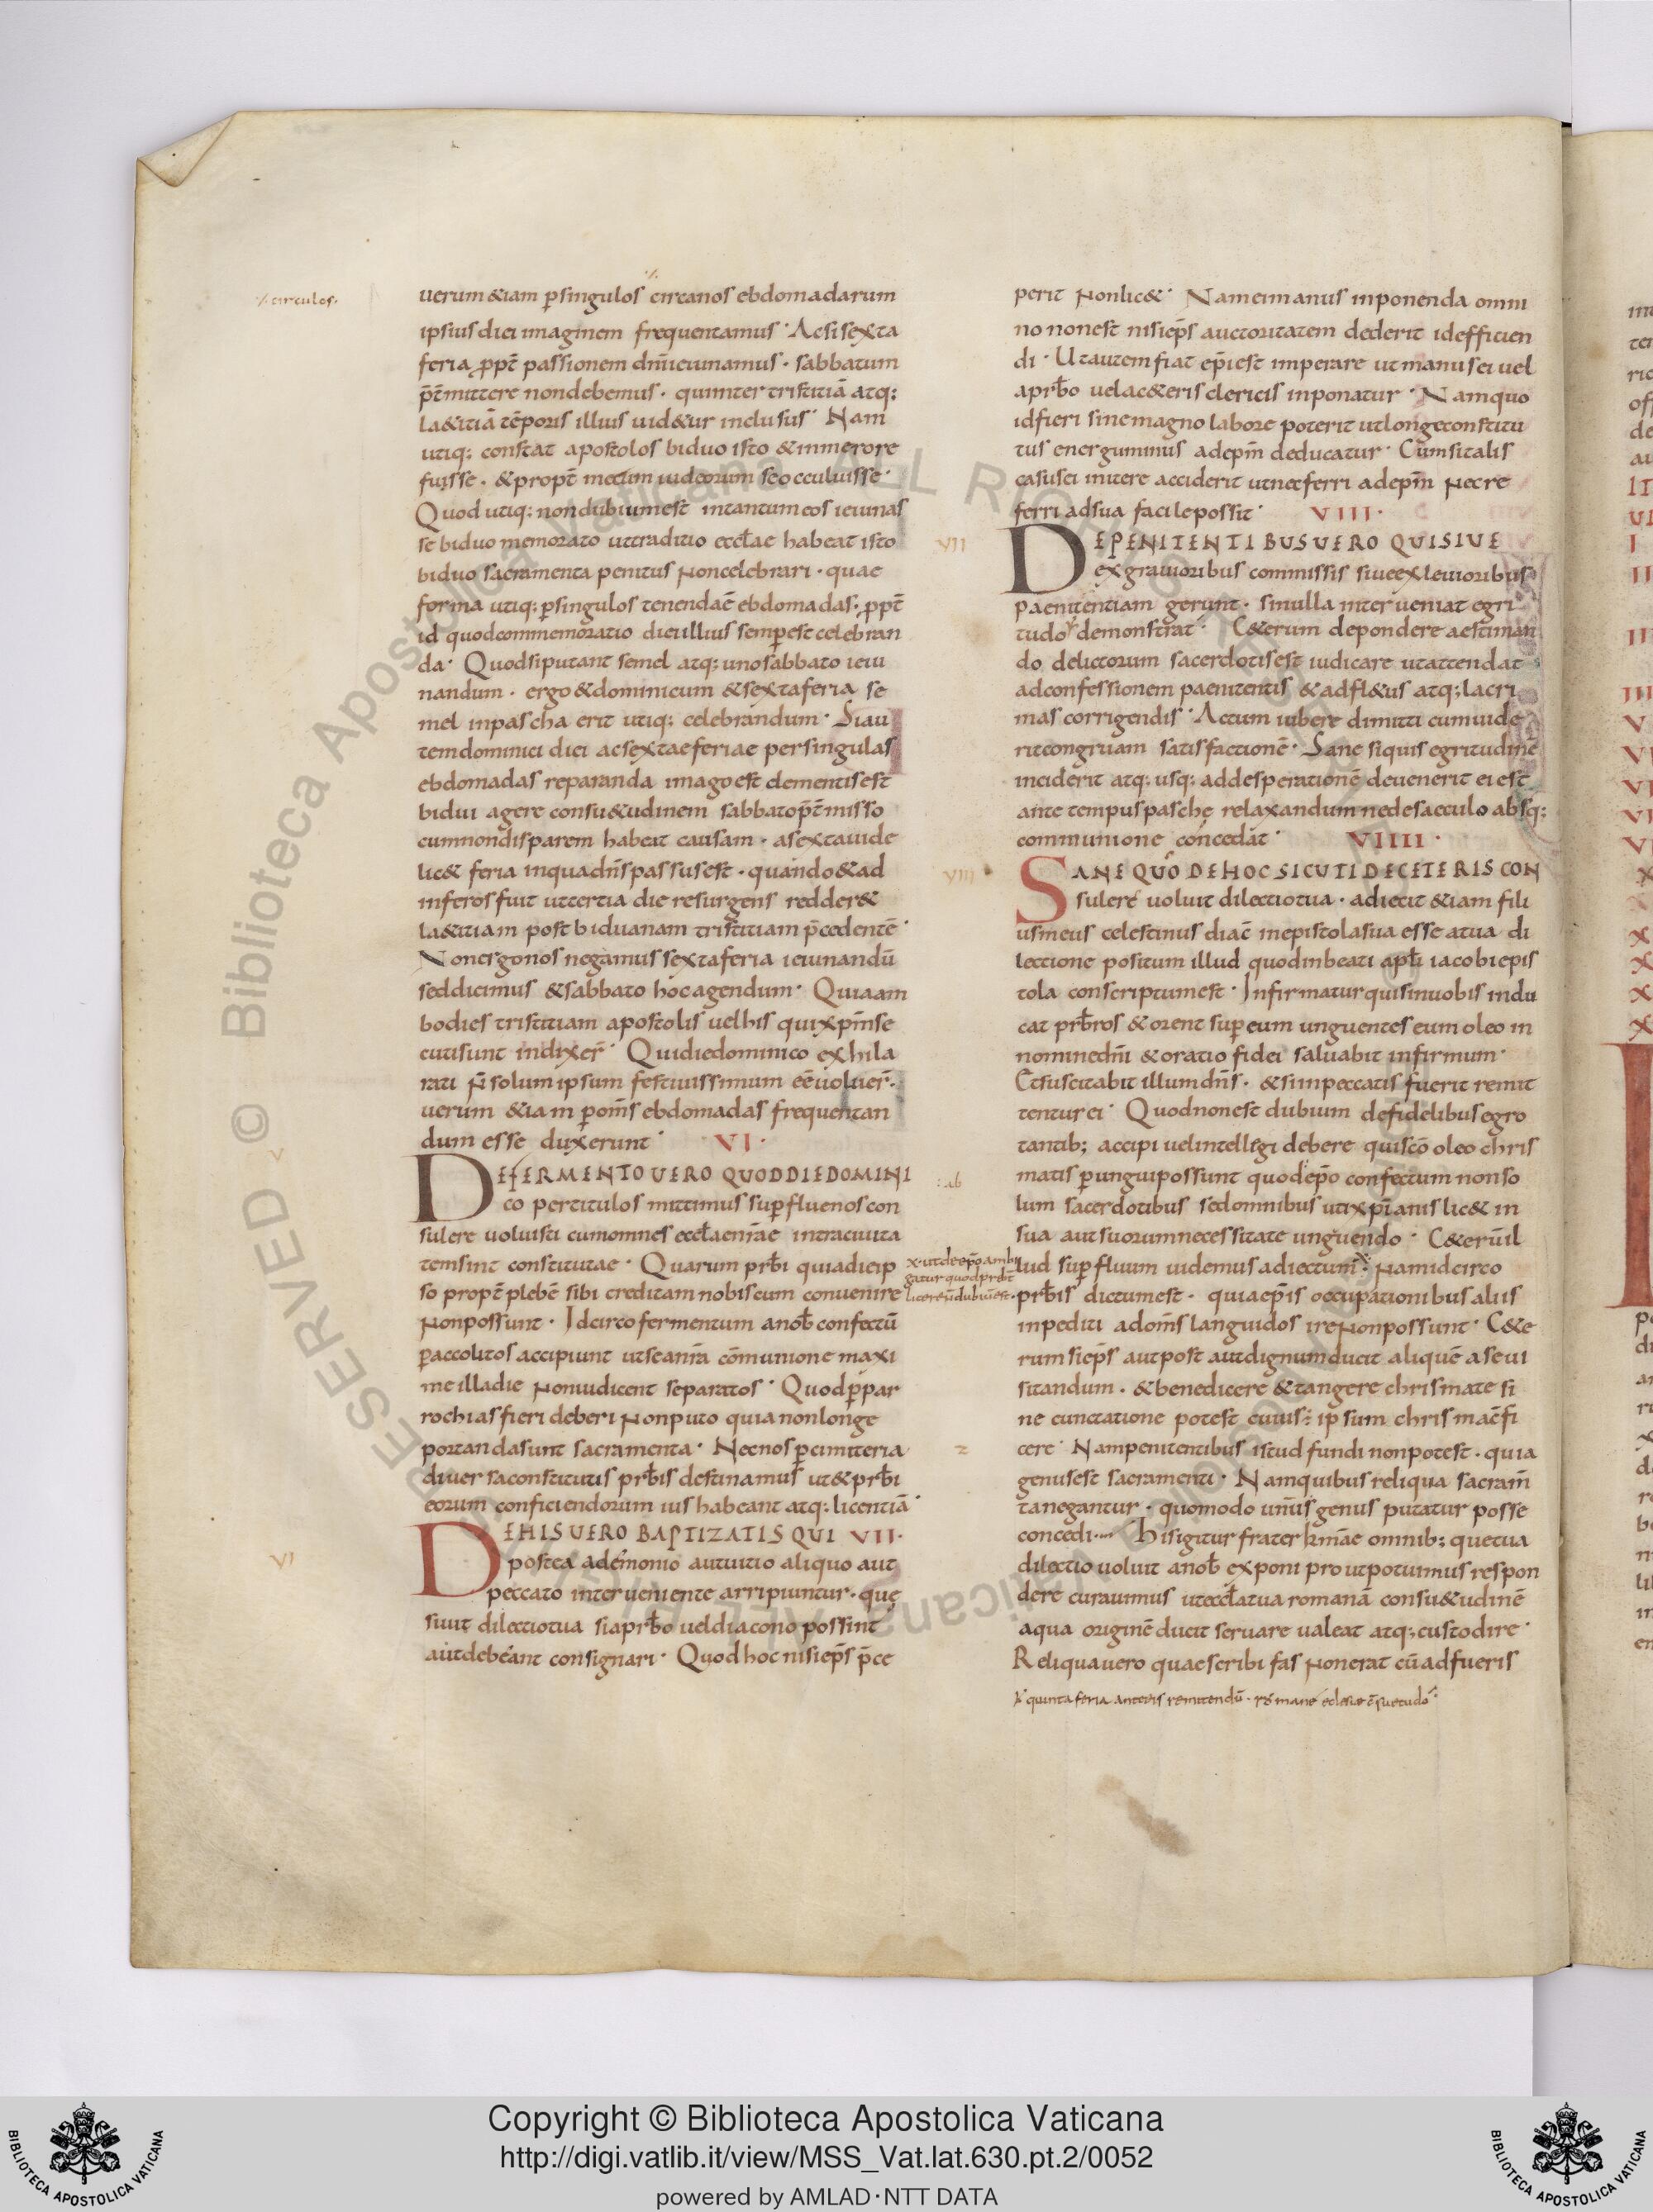 uerum &iam p̱singulos circanos ebdomadarum
ipsius diei imaginem frequentamus · Ac si sexta
feria ꝓpt̄ passionem dn̄i ieiunamus · sabbatum
p̄t̄mittere non debemus · qui inter tristitiā atq;
la&itiā tēporis illius uid&ur inclusus · Nam
utiq; constat apostolos biduo isto & in merore
fuisse · & propt̄ metum iudeorum se occuluisse ·
Quod utiq; non dubium est intantum eos ieiunas
se biduo memorato ut traditio eccłae habeat isto
biduo sacramenta penitus non celebrari · quae
forma utiq; p̱singulos tenendaē ebdomadas · ꝓpt̄
id quod commemoratio diei illius semp̱ est celebran
da · Quod si putant semel atq; uno sabbato ieiu
nandum · ergo & dominicum & sexta feria se
mel in pascha erit utiq; celebrandum · Si au
tem dominici diei ac sextae feriae per singulas
ebdomadas reparanda imago est dementis est
bidui agere consu&udinem sabbato p̄t̄misso
cum non disparem habeat causam · a sexta uide
lic& feria in qua dn̄s passus est · quando & ad
inferos fuit ut tertia die resurgens redder&
la&itiam post biduanam tristitiam p̄cedentē ·
Non ergo nos negamus sexta feria ieiunandū
sed dicimus & sabbato hoc agendum · Quia am
bo dies tristitiam apostolis uel his qui xp̄m se
cuti sunt indixer̄ · Qui die dominico exhila
rati n̄ solum ipsum festiuissimum eē uoluer̄ ·
uerum &iam p̱ om̄s ebdomadas frequentan
dum esse duxerunt · VI ·
DE FERMENTO UERO QUOD DIE DOMINI
co per titulos mittimus sup̱flue nos con
sulere uoluisti cum omnes eccłae nr̄ae intra ciuita
tem sint constitutae · Quarum prb̄i quia die ip
so propt̄ plebē sibi creditam nobiscum conuenire
non possunt · Idcirco fermentum a nob̄ confectū
p̱ accolitos accipiunt ut se a nr̄a cōmunione maxi
me illa die non iudicent separatos · Quod p̱ par
rochias fieri deberi non puto quia non longe
portanda sunt sacramenta · Nec nos p̱ cimiteria
diuersa constitutis prb̄is destinamus ut & prb̄i
eorum conficiendorum ius habeant atq; licentiā ·
DE HIS UERO BAPTIZATIS QUI VII ·
postea a demonio aut uitio aliquo aut
peccato interueniente arripiuntur · quę
siuit dilectio tua si a prb̄o uel diacono possint
aut debeant consignari · Quod hoc nisi ep̄s p̄ce
perit non lic& · Nam ei manus inponenda omni
no non est nisi ep̄s auctoritatem dederit id efficien
di · Ut autem fiat ep̄i est imperare ut manus ei uel
a prb̄o uel a c&eris clericis inponatur · Nam quo
id fieri sine magno labore poterit ut longe constitu
tus energuminus ad ep̄m deducatur · Cum si talis
casus ei initere acciderit ut nec ferri ad ep̄m nec re
ferri ad sua facile possit · VIII ·
DE PENITENTIBUS UERO QUI SIUE
ex grauioribus commissis siue ex leuioribus
paenitentiam gerunt · si nulla interueniat egri
tudo demonstrat · C&erum de pondere aestiman
do delictorum sacerdotis est iudicare ut attendat
ad confessionem paenitentis & ad fl&us atq; lacri
mas corrigendis · Actum iubere dimitti cum uide
rit congruam satisfactionē · Sane si quis egritudinē
inciderit atq; usq; ad desperationē deuenerit ei est
ante tempus paschę relaxandum ne de saeculo absq;
communione concedat · VIIII ·
SANE QUO DE HOC SICUTI DE CETERIS CON
sulere uoluit dilectio tua · adiecit &iam fili
us meus celestinus diac̄ in epistola sua esse a tua di
lectione positum illud quod in beati apłi iacobi epis
tola conscriptum est · Infirmatur quis in uobis indu
cat prb̄ros & orent sup̱ eum unguentes eum oleo in
nomine dn̄i & oratio fidei saluabit infirmum ·
Et suscitabit illum dn̄s · & si in peccatis fuerit remit
tentur ei · Quod non est dubium de fidelibus egro
tantib; accipi uel intellegi debere qui sc̄o oleo chris
matis p̱ungui possunt quod ep̄o confectum non so
lum sacerdotibus sed omnibus uti xp̄ianis lic& in
sua aut suorum necessitate unguendo · C&erū il
lud sup̱fluum uidemus adiectum · Nam idcirco
prb̄is dictum est · quia ep̄is occupationibus aliis
inpediti ad om̄s languidos ire non possunt · C&e
rum si ep̄s aut post aut dignum ducit aliquē a se ui
sitandum · & benedicere & tangere chrismate si
ne cunctatione potest cuius ÷ ipsum chrisma c̄fi
cere · Nam penitentibus istud fundi non potest · quia
genus est sacramenti · Nam quibus reliqua sacram̄
ta negantur · quomodo unus genus putatur posse
concedi · His igitur frater km̄ae omnib; que tua
dilectio uoluit a nob̄ exponi prout potuimus respon
dere curauimus ut eccła tua romanā consu&udinē
a qua originē ducit seruare ualeat atq; custodire ·
Reliqua uero quae scribi fas non erat cū adfueris
circulos ·
VII
VIII
VI
x · ut de ep̄o ambi
gatur quod prb̄t
licere n̄ dubiū est ·
quinta feria anteeis remittendū · romane eclesie c̄suetudo
Copyright © Biblioteca Apostolica Vaticana
http://digi.vatlib.it/view/MSS_Vat.lat.630.pt.2/0052
powered by AMLAD·NTT DATA
BIBLIOTECA APOSTOLICA VATICANA
BIBLIOTECA APOSTOLICA VATICANA